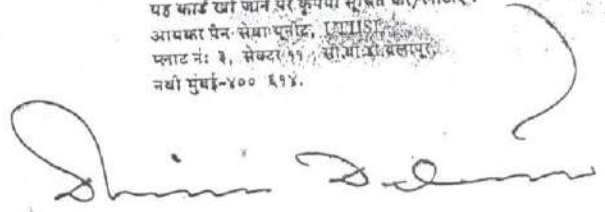 यह कार्ड खो जाने पर कृपया सूचित करें/लौटाएं :
आयकर पैन सेवा यूनीट, UTIISL
प्लाट नं: ३, सेक्टर ११, सी.बी.डी. बेलापुर,
नवी मुंबई-४०० ६१४.